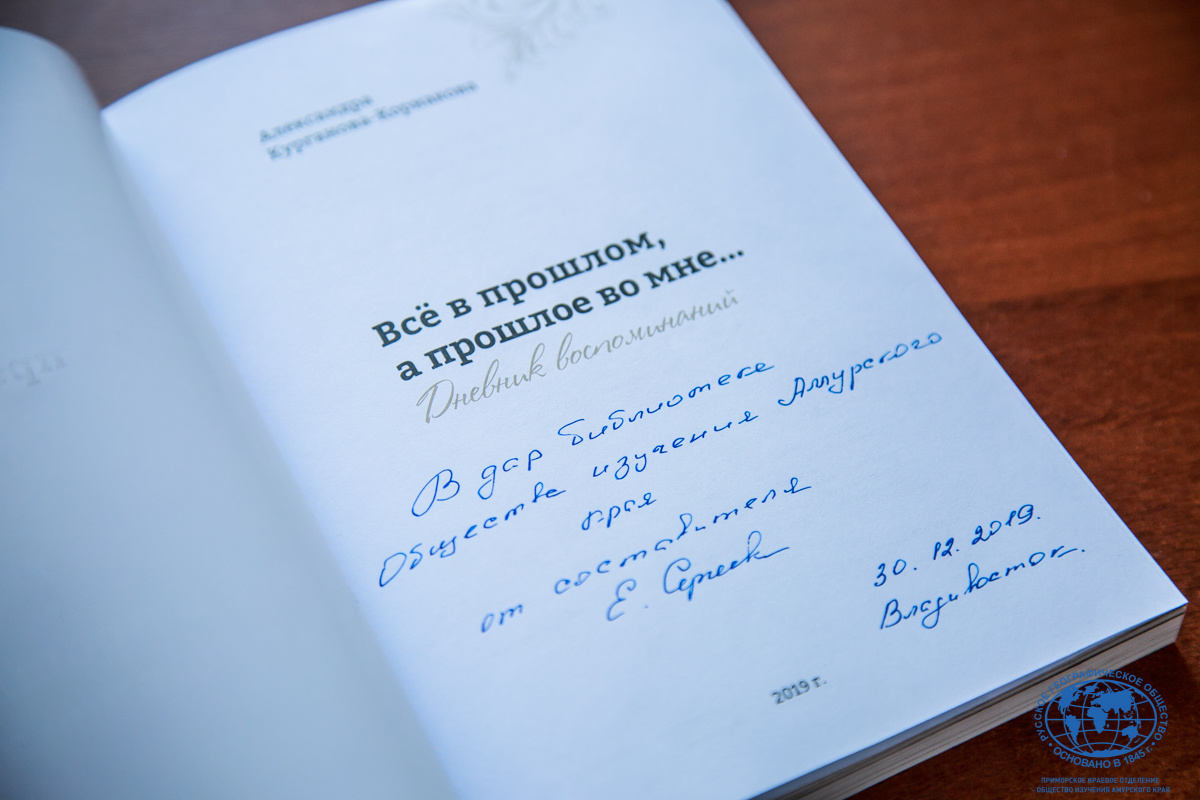 Александра
Курганова-Корнакова
Всё в прошлом,
а прошлое во мне...
Дневник воспоминаний
В дар библиотеке
Общества изучения Амурского
края
от составителя
Е.
30. 12. 2019.
Владивосток.
2019 г.
РУССКОЕ ГЕОГРАФИЧЕСКОЕ ОБЩЕСТВО
ОСНОВАНО В 1845 г.
ПРИМОРСКОЕ КРАЕВОЕ ОТДЕЛЕНИЕ
ОБЩЕСТВО ИЗУЧЕНИЯ АМУРСКОГО КРАЯ